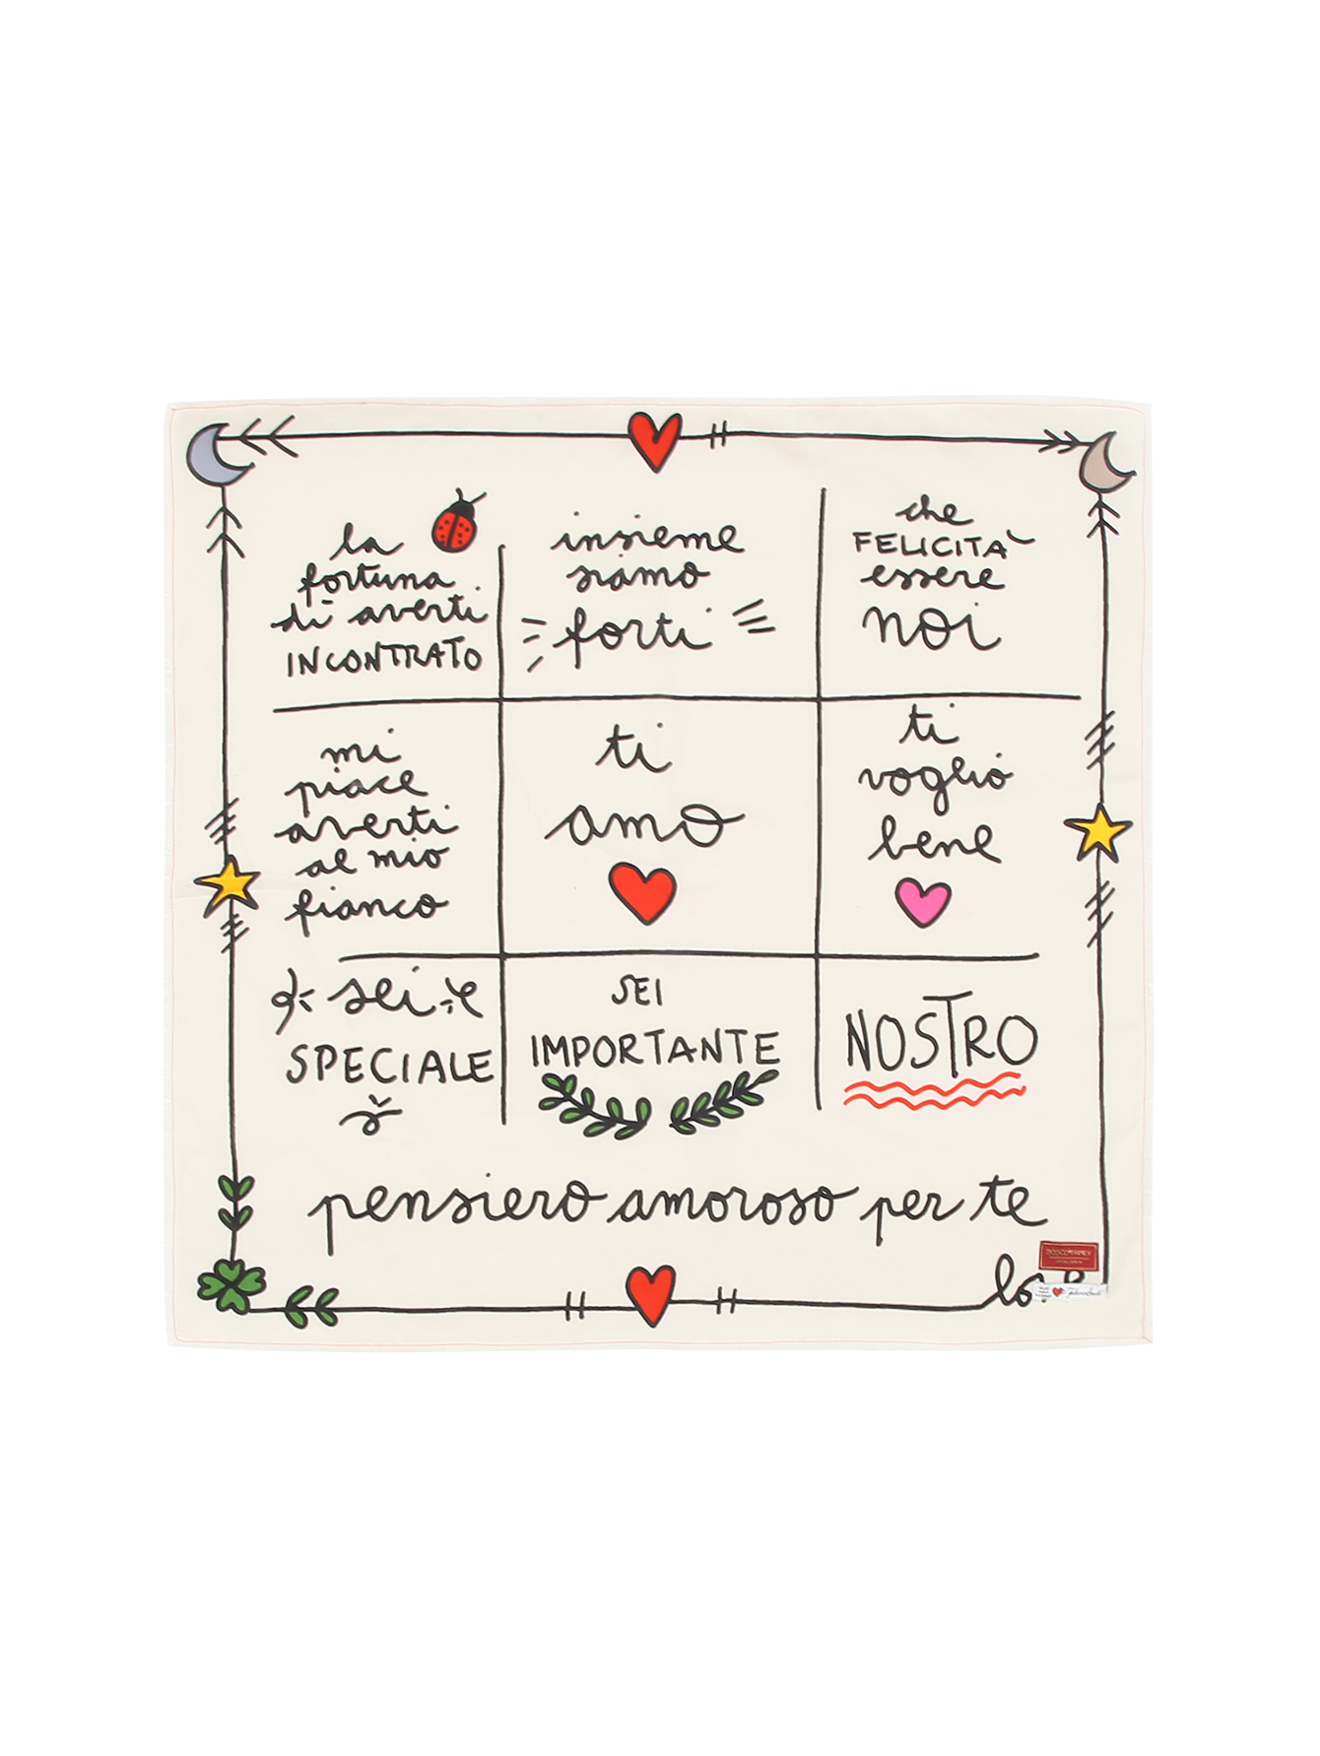 la
fortuna
di averti
INCONTRATO
insieme
siamo
forti
che
FELICITA'
essere
noi
mi
piace
averti
al mio
fianco
ti
amo
ti
voglio
bene
sei
SPECIALE
SEI
IMPORTANTE
NOSTRO
pensiero amoroso per te